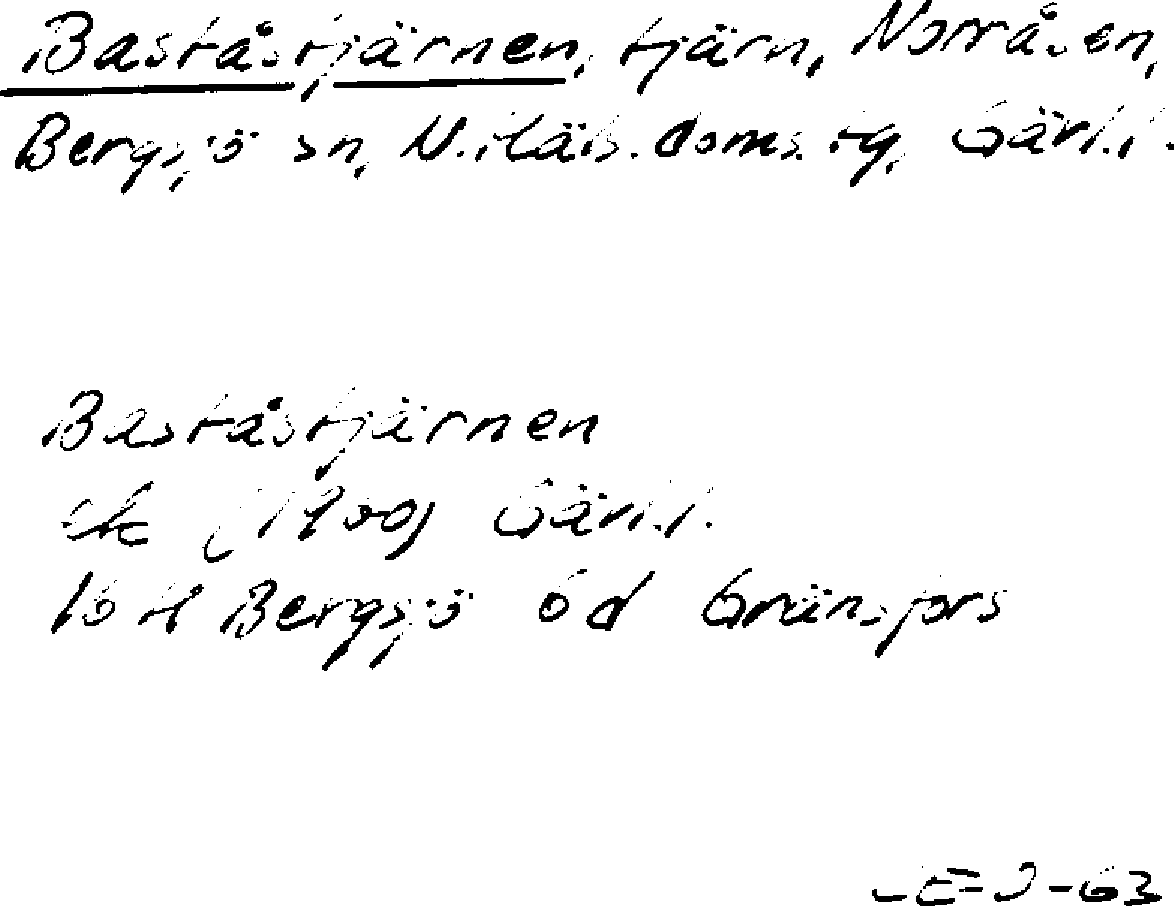 Baståstjärnen, tjärn, Norråsen,
Bergsjö sn, N. Häls. doms. tg, Gävl.l.
Baståstjärnen
ek (1900) Gävl.l.
16 H Bergsjö 6 d Gränsfors